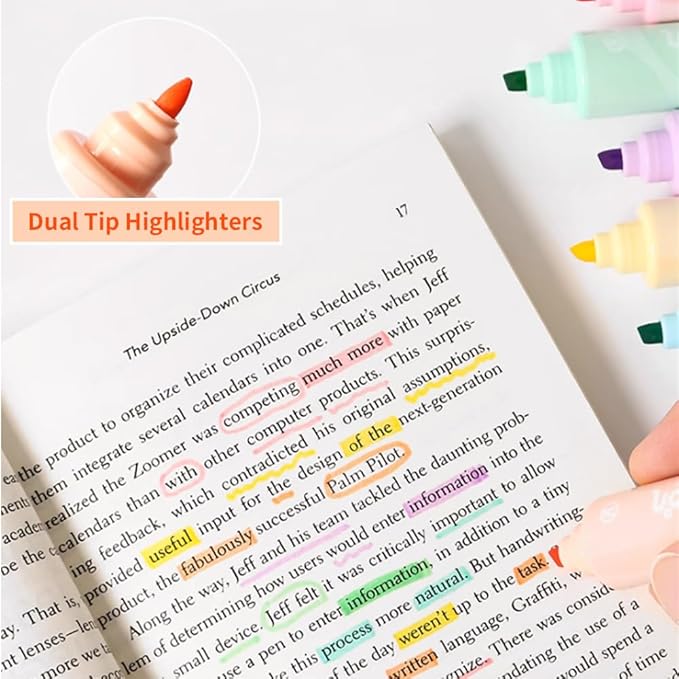 Dual Tip Highlighters
17
The Upside-Down Circus
the product to organize their complicated schedules, helping
them integrate several calendars into one. That's when Jeff
realized the Zoomer was competing much more with paper
calendars than with other computer products. This surpris-
ing feedback, which contradicted his original assumptions,
provided useful input for the design of the next-generation
product, the fabulously successful Palm Pilot.
Along the way, Jeff and his team tackled the daunting prob-
lem of determining how users would enter information into the
small device. Jeff felt it was critically important to allow
use a pen to enter information, in addition to a tiny
this process more natural. But handwriting-
of the day weren't up to the task
written language, Graffiti, w
There was consider
the use of a
would spend a
of time
academ
be the c
That is,
nt lenses—len
more we ta